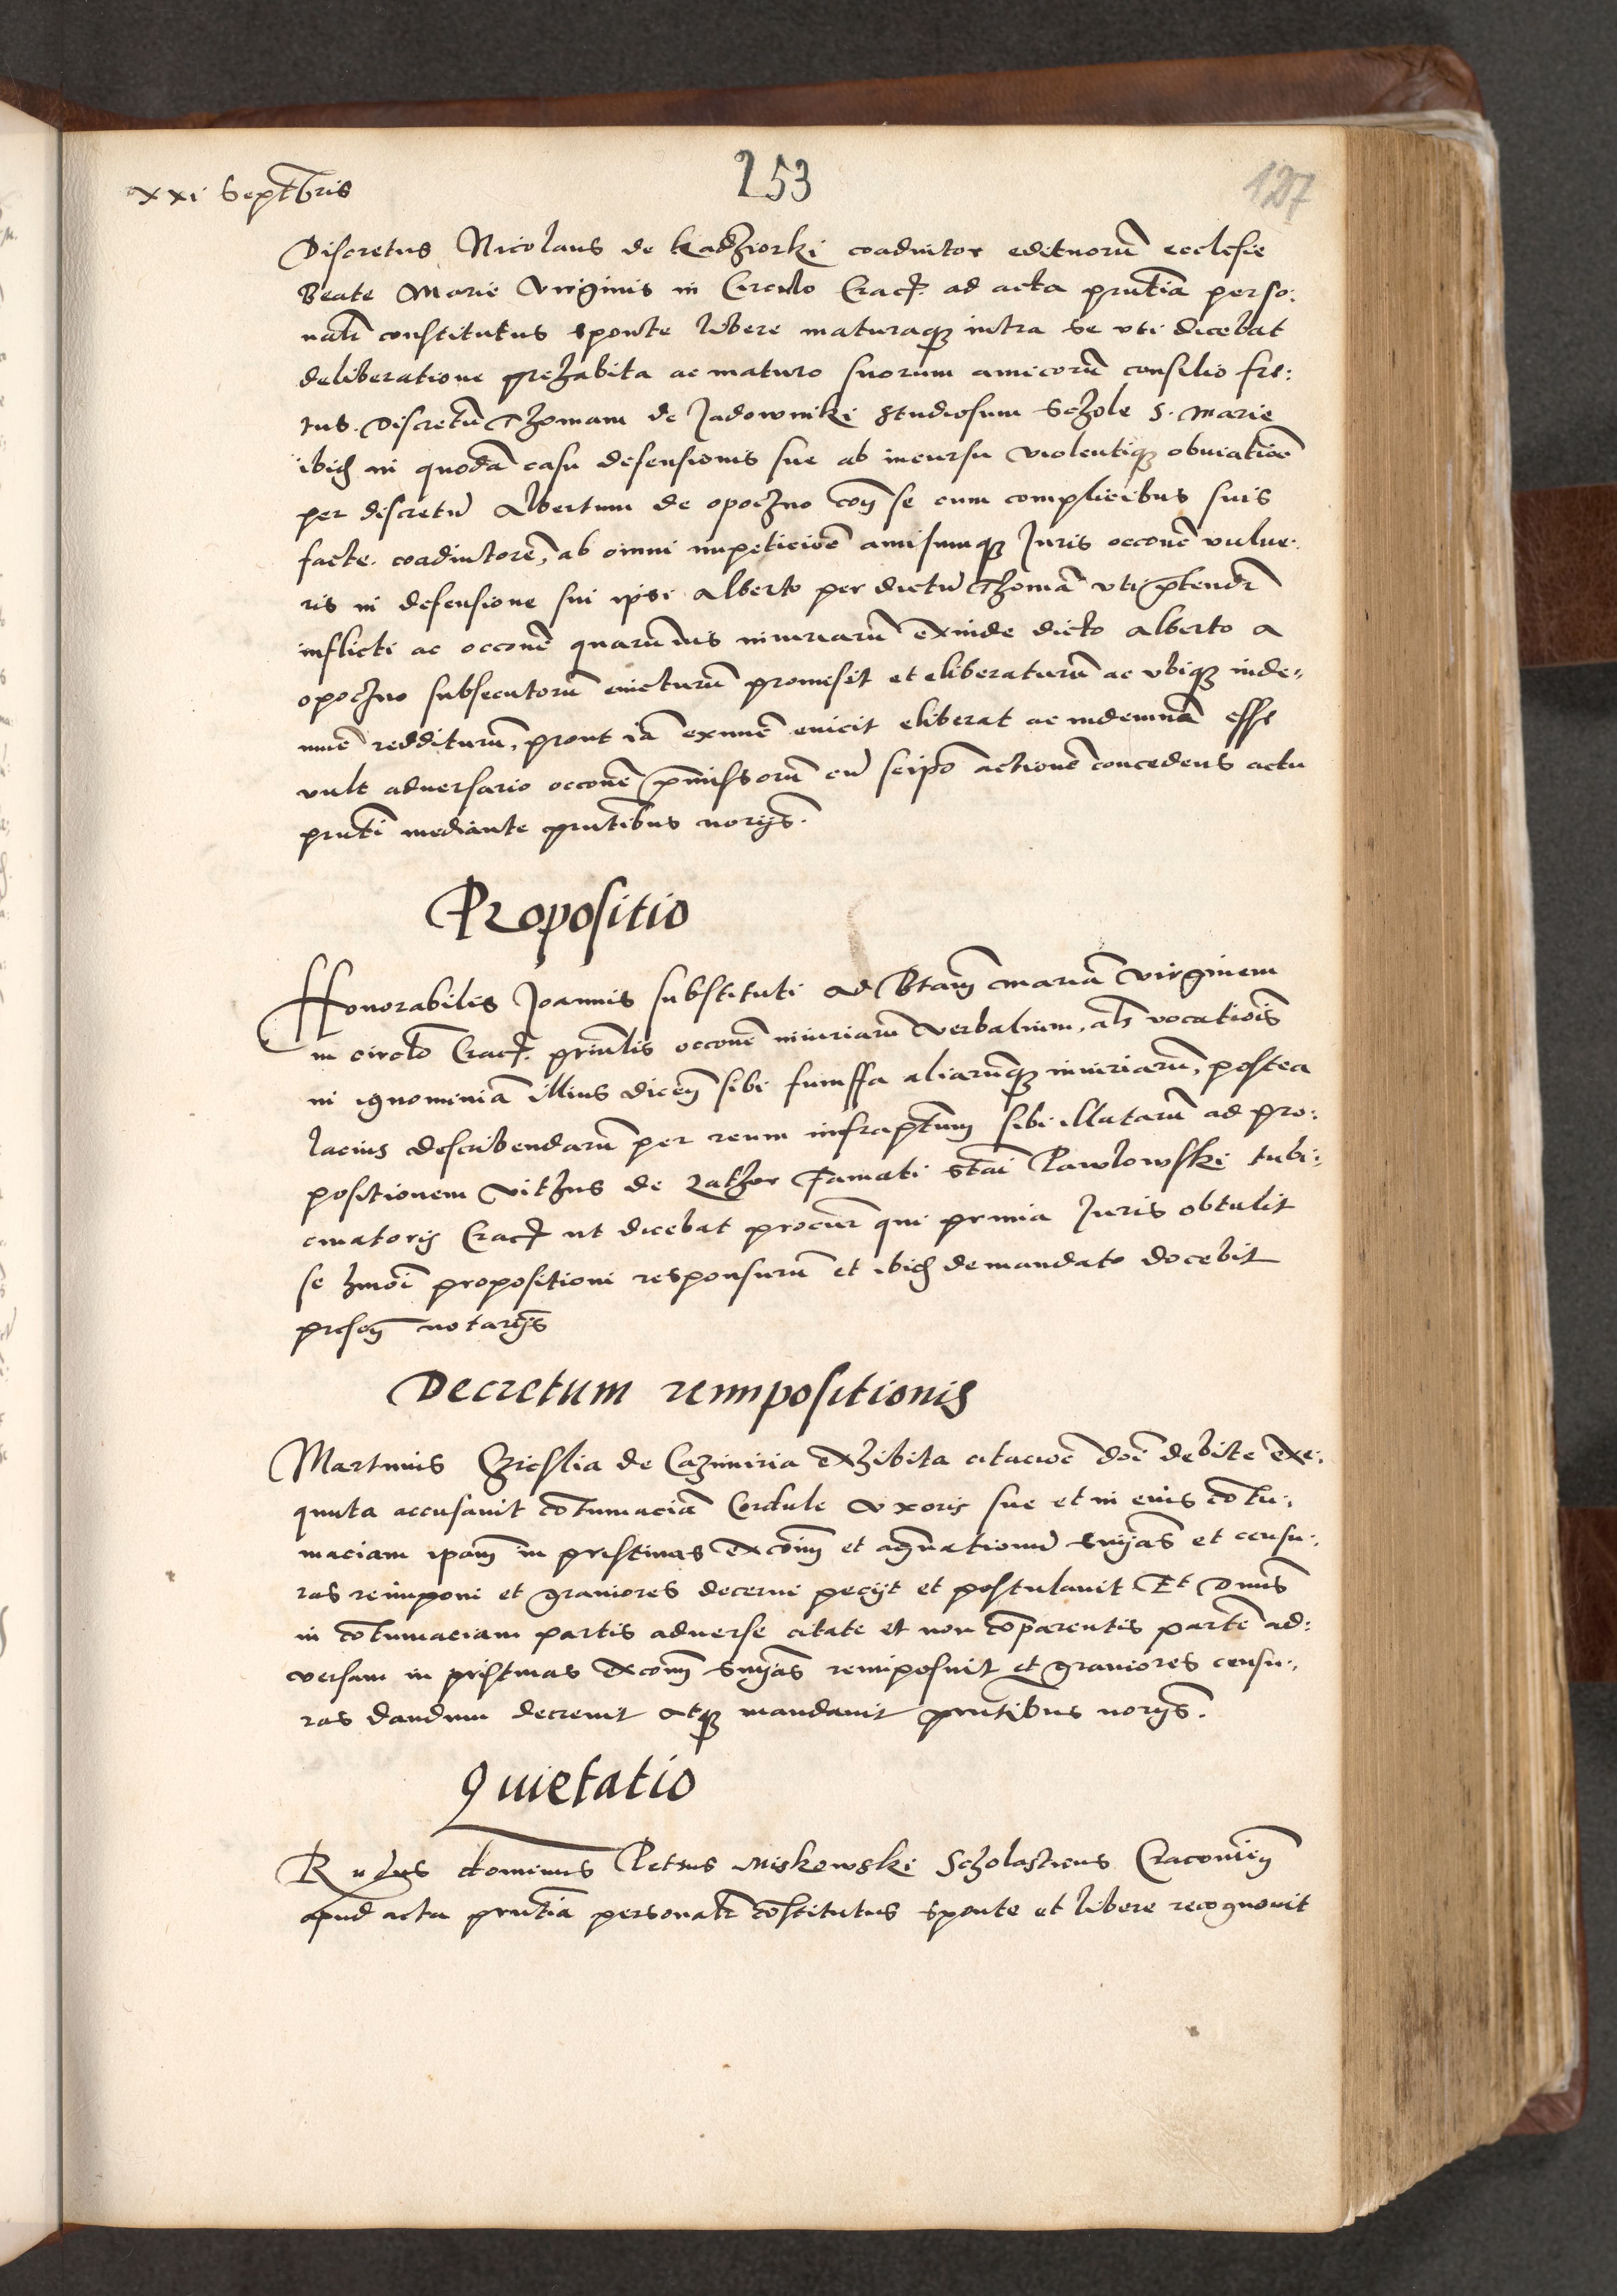 xxi Septẽbris
253
127
Discretus Nicolaus de Kadziorki coadiutor edituorũ ecclesie
Beate Marie Virginis in Circulo Crac. ad acta pñtia perso:
nalr constitutus sponte libere maturaq₃ intra se uti dicebat
deliberatione prehabita ac maturo suorum amicorũ consilio fre:
tus. Discretũ Thomam de Jadowniki studiosum Schole S. Marie
ibid in quodã casu defensionis sue ab incursu violentiq₃ obviatioe
per discretũ Albertum de opoczno con se cum complicibus suis
facte. coadiutorẽ, ab omni impeticioẽ Juris occonẽ vulne:
ris in defensione sui ipsi Alberto per dictũ Thomã uti ptendr
inflicti ac occonẽ quarũvis iniuriarũ exinde dicto Alberto a
opoczno subsecutorũ evicturũ promisit et eliberaturũ ac ubiq₃ inde:
mnẽ redditurũ, prout iã ex nunc evicit eliberat ac indemnẽ esse
vult adversario occonẽ pmissorũ cũ seipo actionẽ concedens actu
pñti mediante pñtibus norijs.
Propositio
Honorabilis Joannis substituti ad Btam mariã virginem
in circlo Crac. prinlis occonẽ iniuriarũ verbalium, als vocatiois
in ignominiã illius dicen sibi aliarũq₃ iniuriarũ, postea
lacius describendarũ per reum infraptum sibi illatarũ ad pro:
positionem Vithus de Zathor Famati Stai Pawlowski tubi:
cinatoris Crac ut dicebat procur qui prmia Juris obtulit
se hmoi propositioni responsurũ et ibid de mandato docebit
presen notarijs
Decretum reimpositionis
Martinus Czieslia de Cazimiria exhibita citacioẽ doi debite exe:
quuta accusavit cotumaciã Cordule uxoris sue et in eius cotu:
maciam ipam in pristinas excom et agravationũ snijas et censu:
ras reimponi et graviores decerni pecijt et postulavit Et Dnus
in cotumaciam partis adverse citate et non coparentis partẽ ad:
versam in pristinas excom snijas reimposuit et graviores censu:
ras dandum decrevit atq₃ mandavit pñtibus norijs.
Quietatio
Rndus dominus Petrus Miskowski Scholasticus Cracovien
apud acta pñtia personalr cõstitutus sponte et libere recognovit